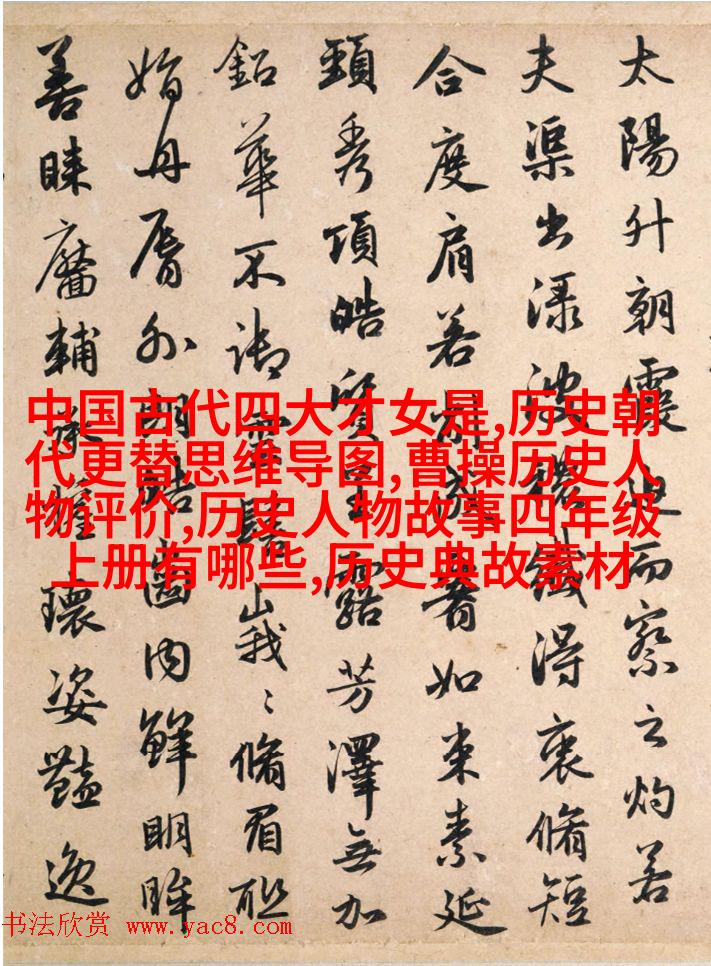 太陽升朝霞迫而察之灼若
夫渠出渌波穠纖得衷脩短
合度肩若削成如束素延
頸秀項皓質呈露芳澤無加
鉛華不御雲髻峩〻脩眉联
娟丹脣外朗皓齒内鮮明眸
善睞靨輔承權瓌姿豔逸
中国古代四大才女是,历史朝
代更替思维导图,曹操历史人
物评价,历史人物故事四年级
上册有哪些,历史典故素材
书法欣赏 www.yac8.com